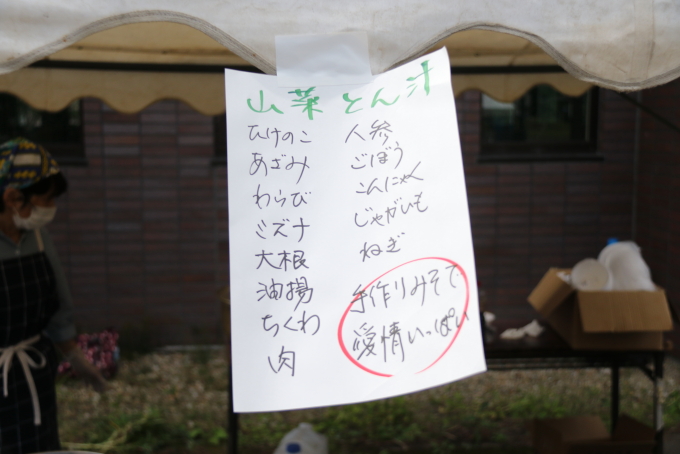 山菜とん汁
たけのこ
あざみ
わらび
ミズナ
大根
油揚
ちくわ
肉
人参
ごぼう
こんにゃく
じゃがいも
ねぎ
手作りみそで
愛情いっぱい